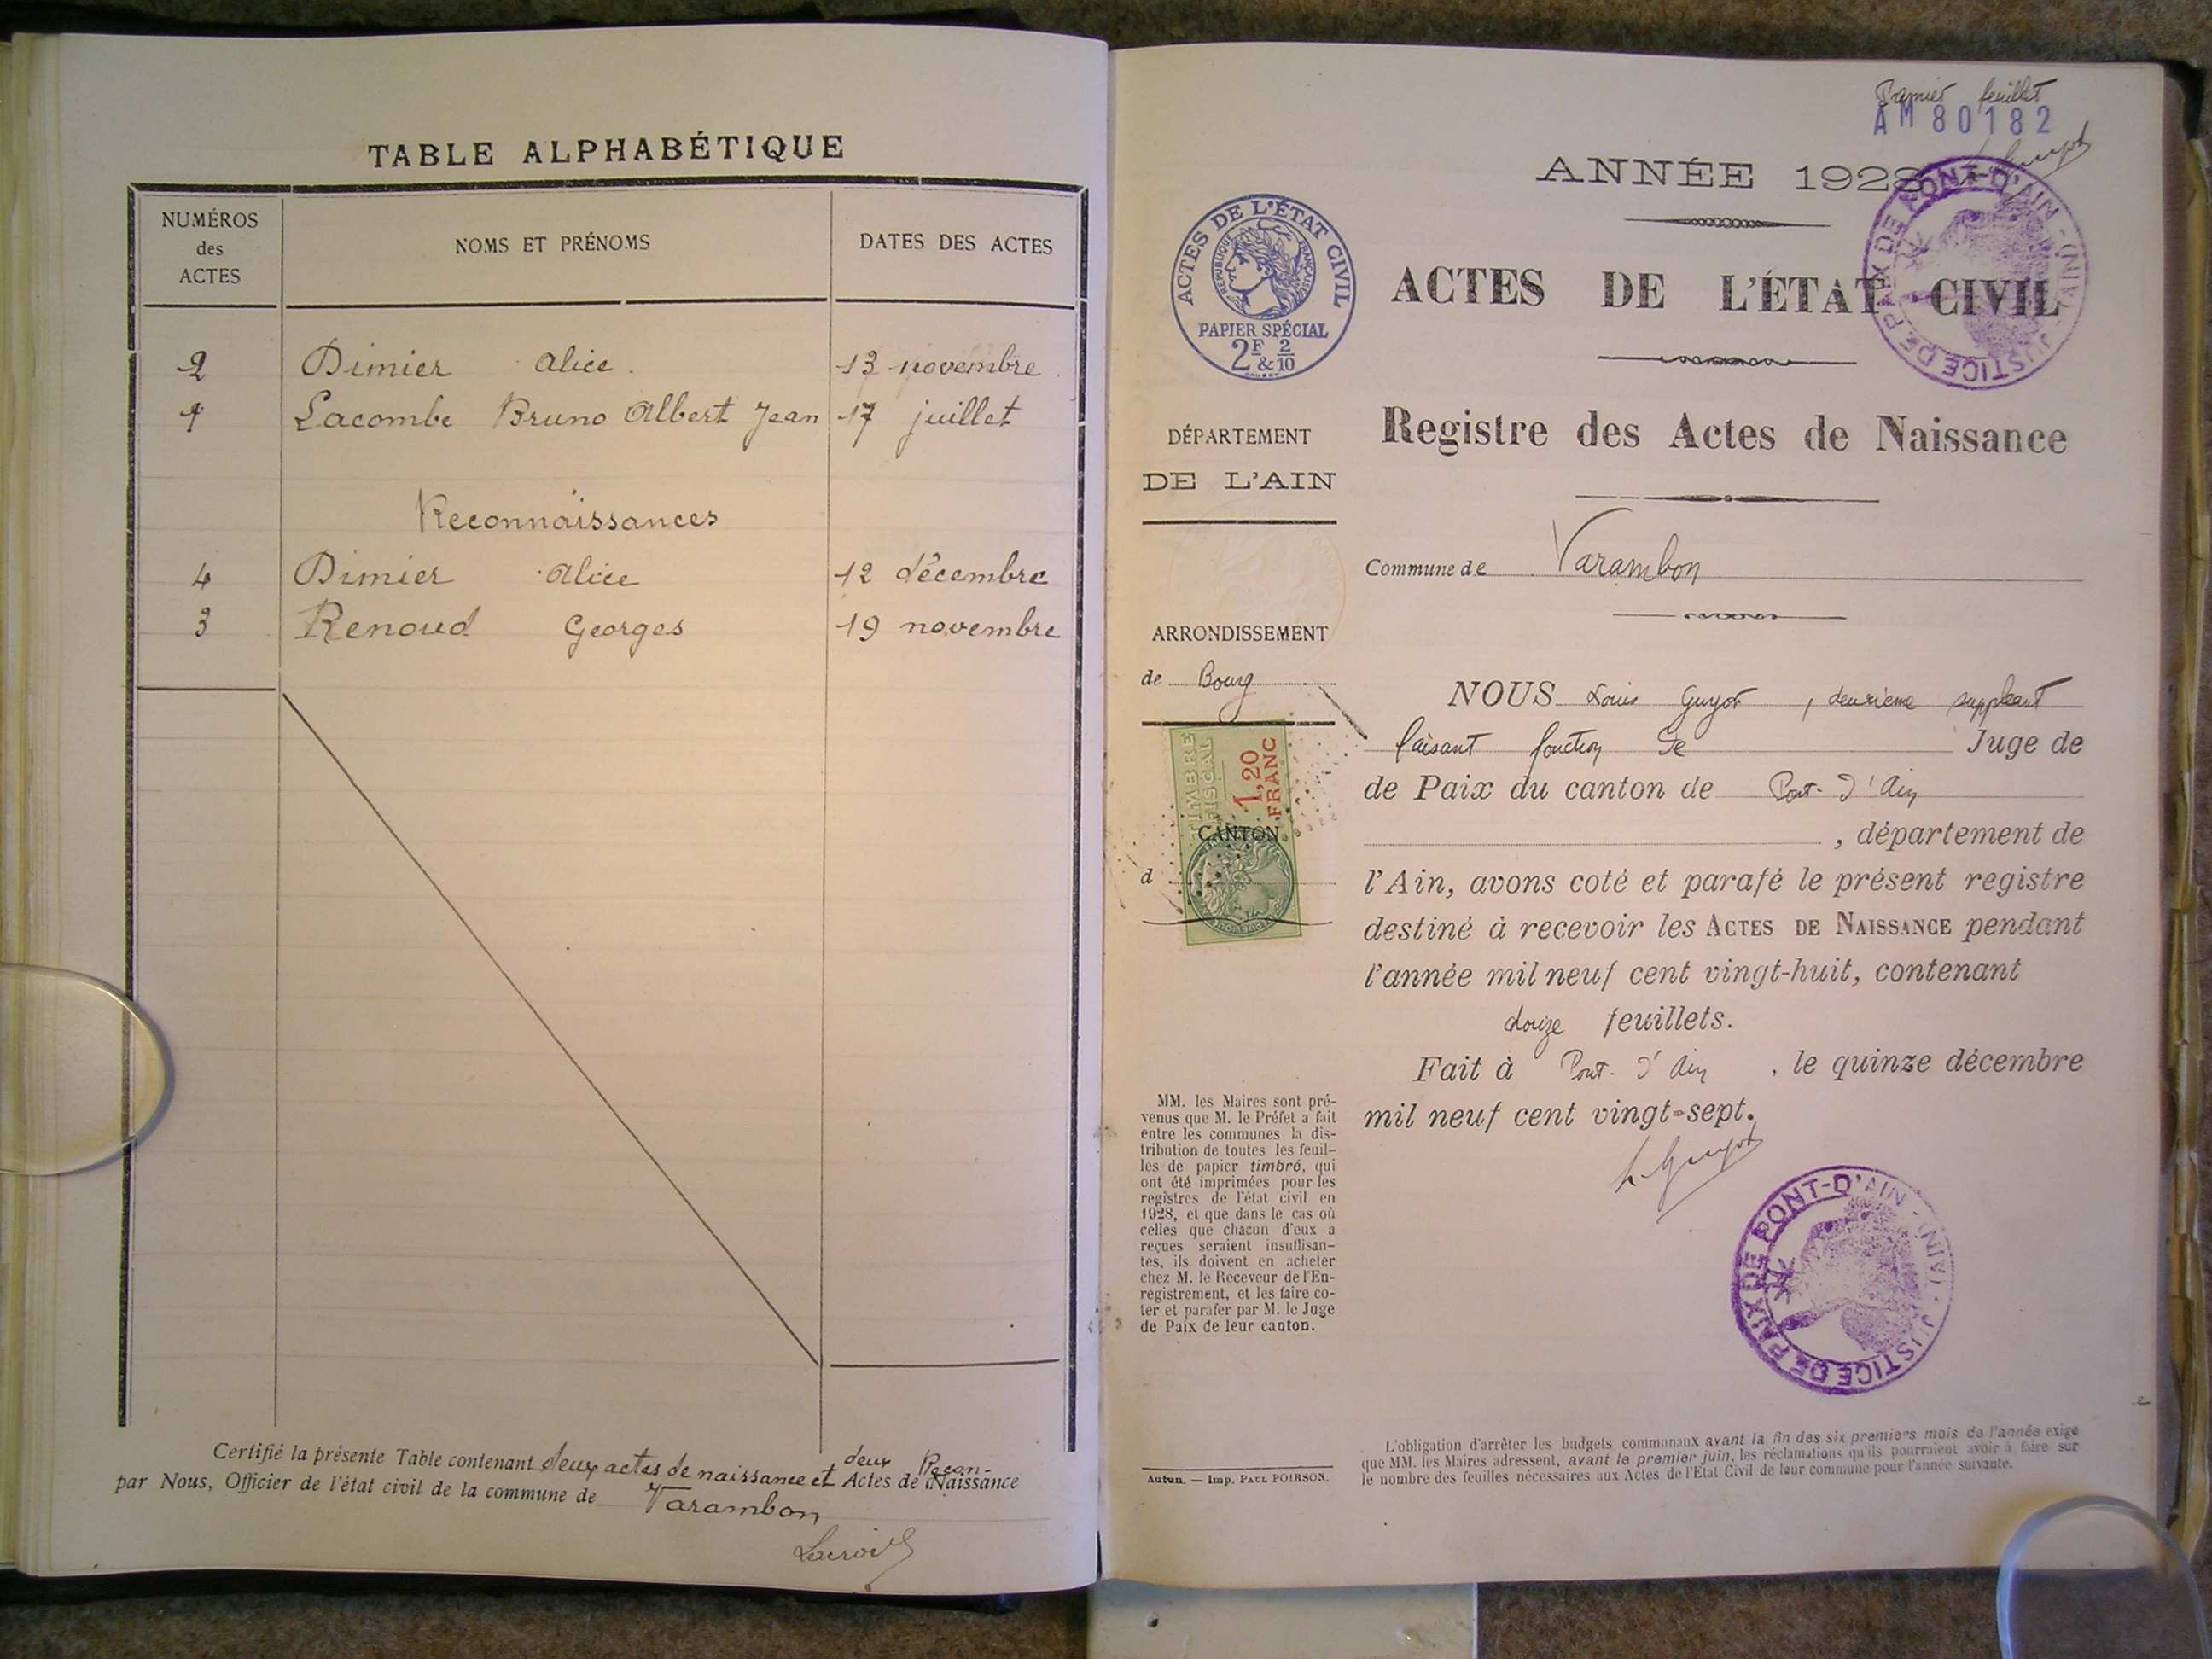 TABLE ALPHABÉTIQUE
NUMÉROS
des
ACTES
NOMS ET PRÉNOMS
DATES DES ACTES
2 Dimier Alice . 13 novembre .
1 Lacombe Bruno Albert Jean 17 juillet
Reconnaissances
4 Dimier Alice 12 décembre
3 Renoud Georges 19 novembre
Certifié la présente Table contenant deux actes de naissance et deux Recon-
Actes de Naissance
par Nous, Officier de l'état civil de la commune de Varambon
Lacroix
Premier feuillet
AM 80182
L. Guyot
ANNÉE 1928
JUSTICE DE PAIX DE PONT-D'AIN (AIN)
ACTES DE L'ÉTAT CIVIL
RÉPUBLIQUE FRANÇAISE
PAPIER SPÉCIAL
2F & 2/10
ACTES DE L'ÉTAT CIVIL
Registre des Actes de Naissance
DÉPARTEMENT
DE L'AIN
Commune de Varambon
ARRONDISSEMENT
de Bourg
TIMBRE
FISCAL
1,20
FRANC
CANTON
d
NOUS Louis Guyot, deuxième suppléant
faisant fonction de Juge de
de Paix du canton de Pont-d'Ain
, département de
l'Ain, avons coté et parafé le présent registre
destiné à recevoir les ACTES DE NAISSANCE pendant
l'année mil neuf cent vingt-huit, contenant
douze feuillets.
Fait à Pont-d'Ain, le quinze décembre
mil neuf cent vingt-sept.
L. Guyot
JUSTICE DE PAIX DE PONT-D'AIN (AIN)
MM. les Maires sont pré-
venus que M. le Préfet a fait
entre les communes la dis-
tribution de toutes les feuil-
les de papier timbré, qui
ont été imprimées pour les
registres de l'état civil en
1928, et que dans le cas où
celles que chacun d'eux a
reçues seraient insuffisan-
tes, ils doivent en acheter
chez M. le Receveur de l'En-
registrement, et les faire co-
ter et parafer par M. le Juge
de Paix de leur canton.
Autun. — Imp. PAUL POIRSON.
L'obligation d'arrêter les budgets communaux avant la fin des six premiers mois de l'année exige
que MM. les Maires adressent, avant le premier juin, les réclamations qu'ils pourraient avoir à faire sur
le nombre des feuilles nécessaires aux Actes de l'Etat Civil de leur commune pour l'année suivante.